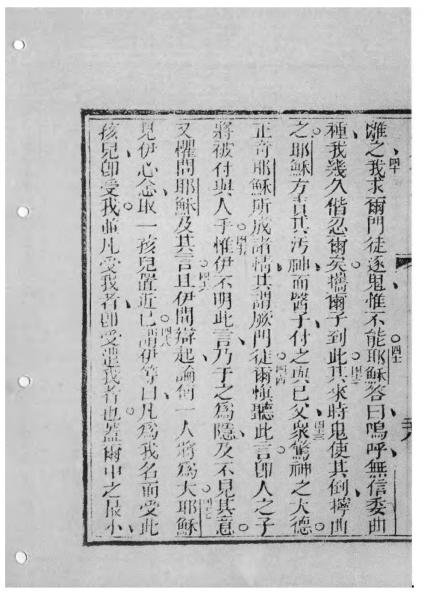 離之我求爾門徒逐鬼惟不能耶穌答曰嗚呼無信委曲
種我幾久偕忍爾矣攜爾子到此其來時鬼使其倒擰曲
之耶穌方責其汚神而醫子付之與己父衆驚神之大德
正奇耶穌所成諸情其謂厥門徒爾愼聽此言卽人之子
將被付與人手惟伊不明此言乃于之爲隱及不見其意
又懼問耶穌及其言且伊間辯起論何一人將爲大耶穌
見伊心念取一孩兒置近己謂伊等曰凡爲我名而受此
孩兒卽受我並凡受我者卽受遣我者也蓋爾中之最小